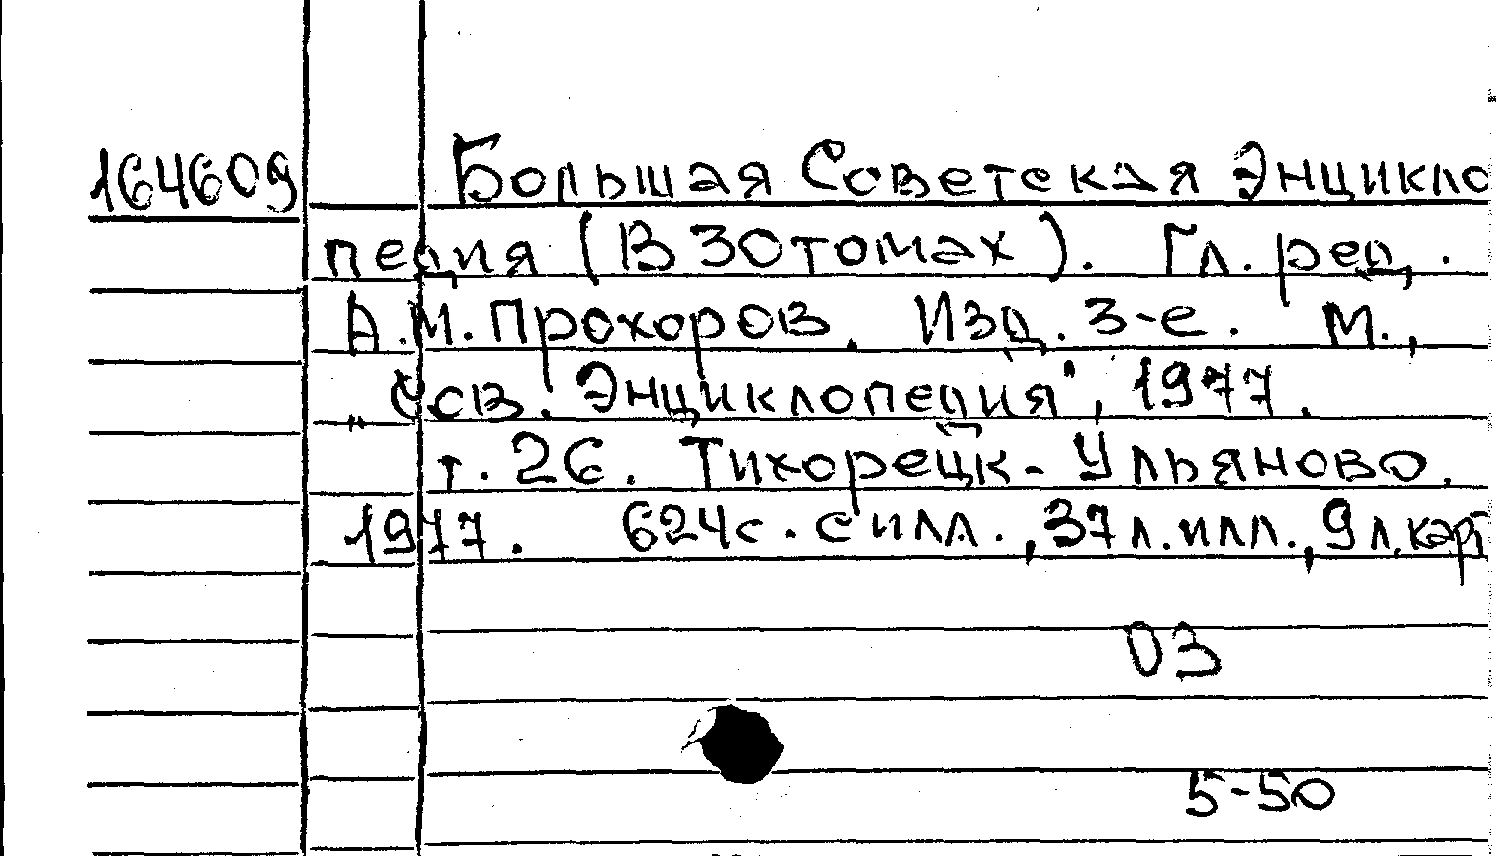 164609 Большая Советская Энцикло
педия (В 30 томах). Гл. ред.
А.М. Прохоров. Изд. 3-е. М.,
„Сов. Энциклопедия", 1977.
т. 26. Тихорецк - Ульяново.
1977. 624 с. с илл., 37 л. илл., 9 л. карт
03
5-50